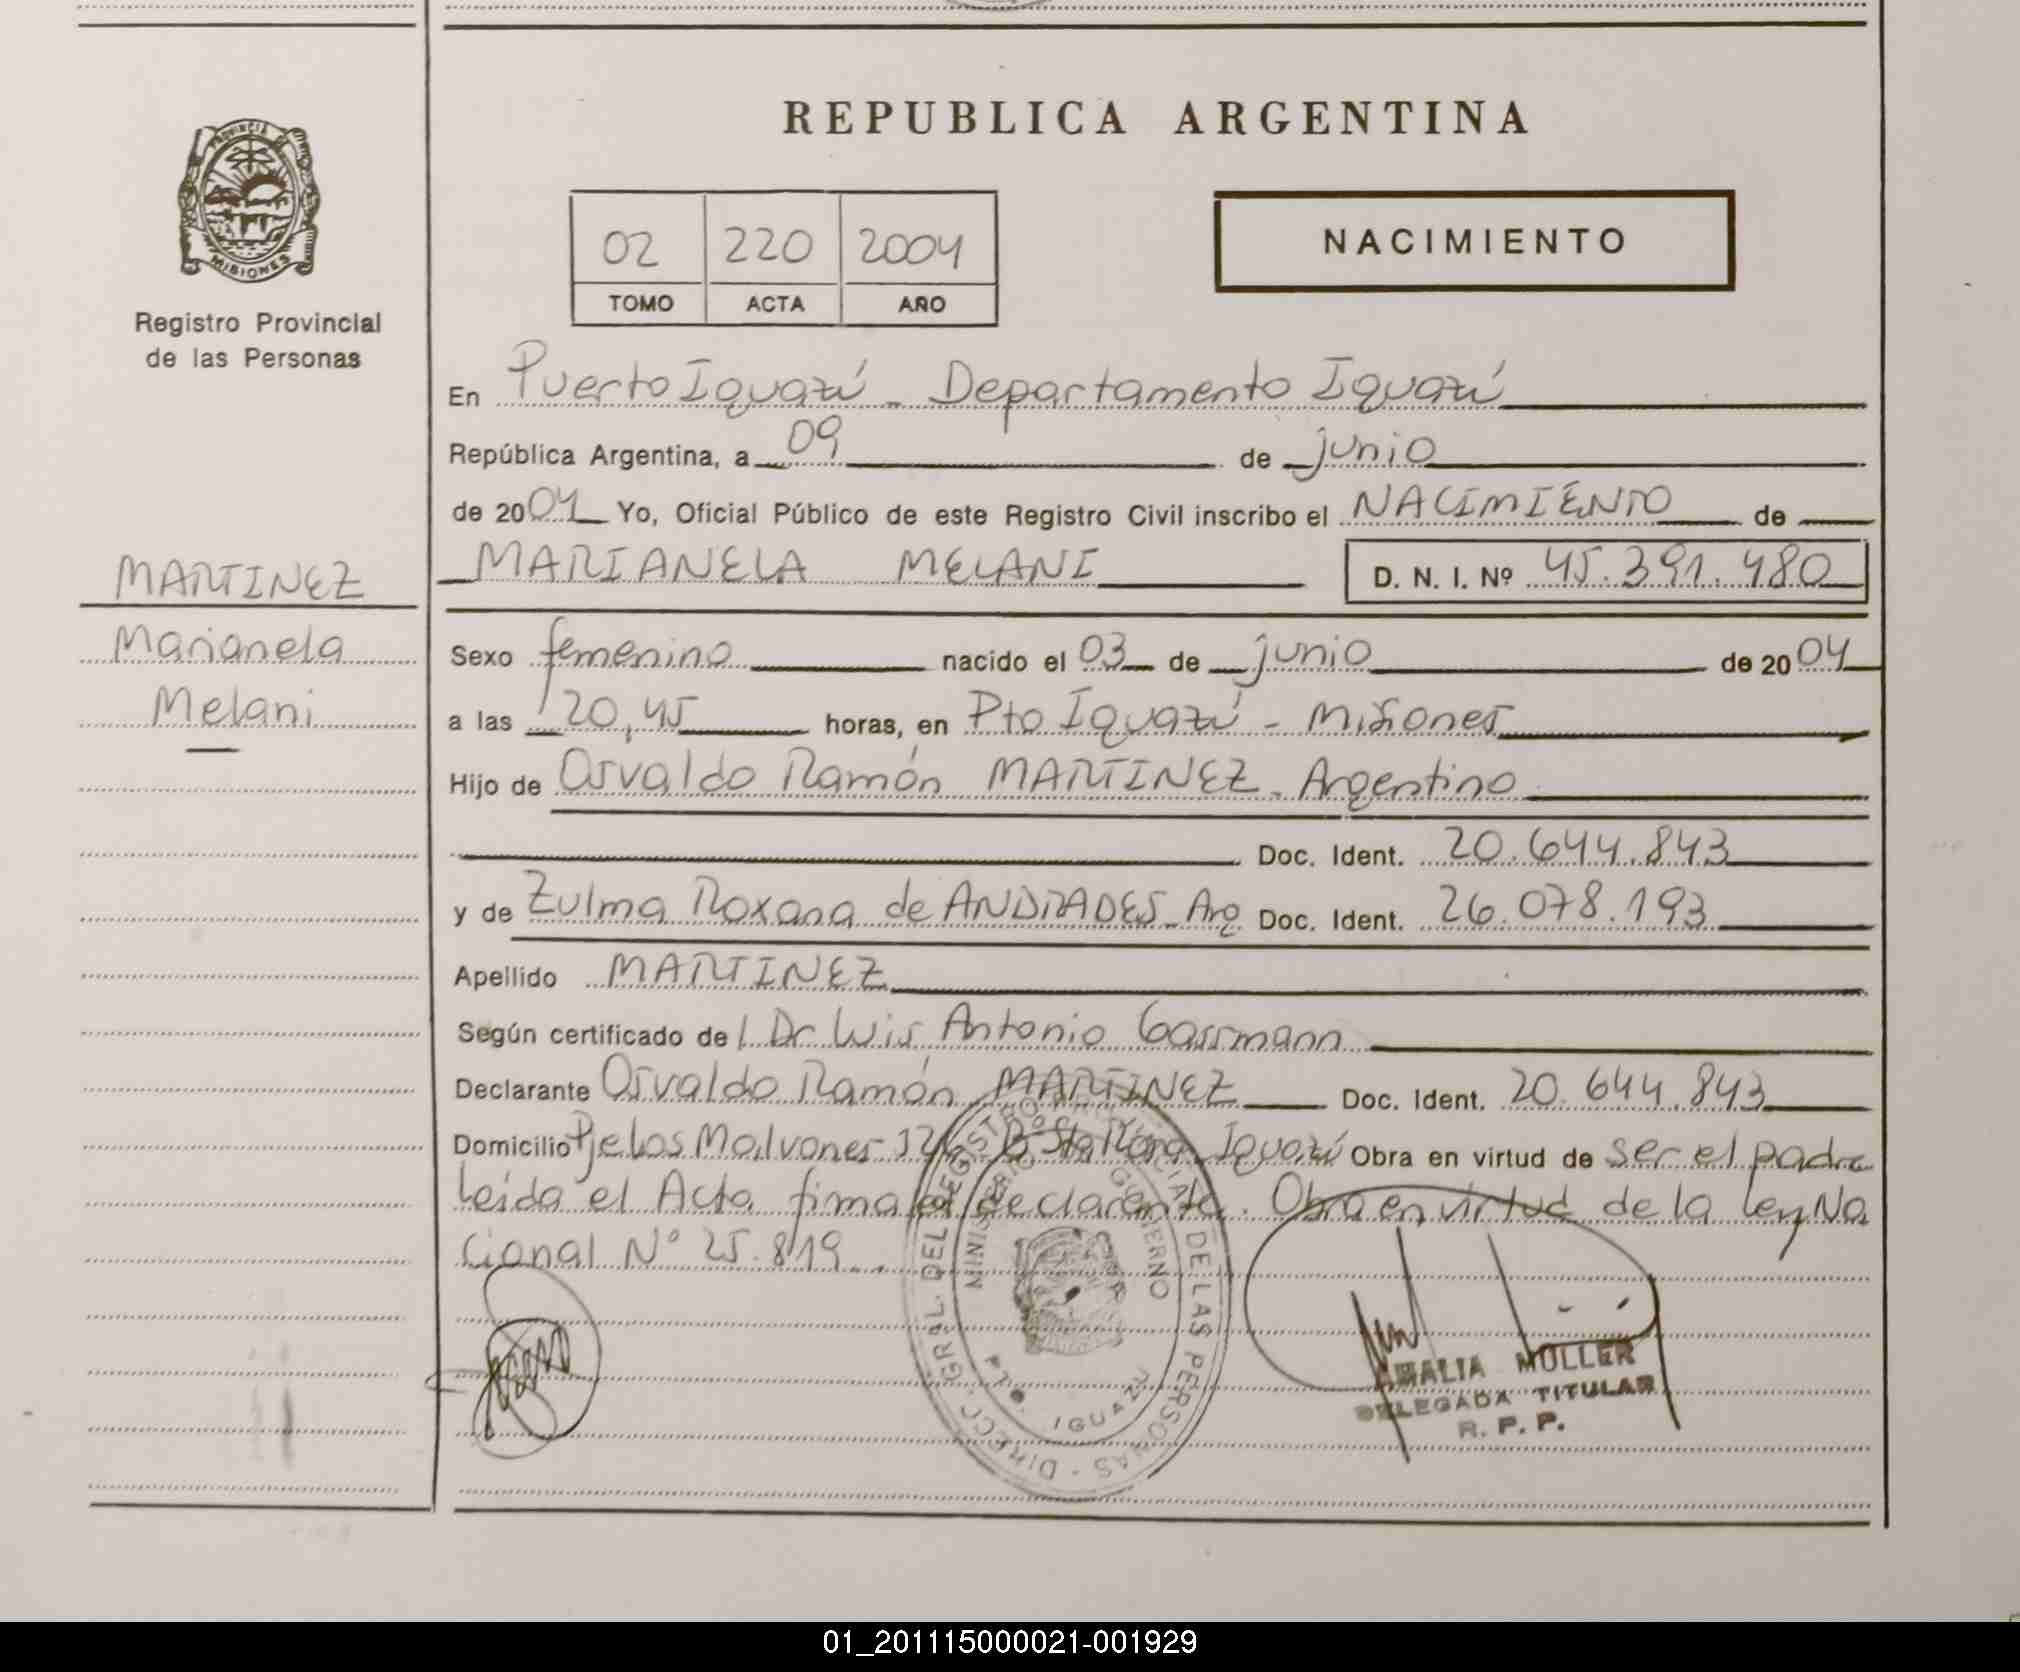 REPUBLICA ARGENTINA
PROVINCIA DE
MISIONES
Registro Provincial
de las Personas
02 220 2004
TOMO ACTA AÑO
NACIMIENTO
En Puerto Iguazú - Departamento Iguazú
República Argentina, a 09 de junio
de 2004 Yo, Oficial Público de este Registro Civil inscribo el NACIMIENTO de
MARIANELA MELANI D. N. I. Nº 45.391.480
MARTINEZ
Marianela
Melani
Sexo femenino nacido el 03 de junio de 2004
a las 20,45 horas, en Pto Iguazú - Misiones
Hijo de Osvaldo Ramón MARTINEZ - Argentino
Doc. Ident. 20.644.843
y de Zulma Roxana de ANDRADES - Arg Doc. Ident. 26.078.193
Apellido MARTINEZ
Según certificado del Dr Luis Antonio Gassmann
Declarante Osvaldo Ramón MARTINEZ Doc. Ident. 20.644.843
Domicilio Pje Los Malvones Bº Sta Rosa Iguazú Obra en virtud de ser el padre
Leída el Acta firma el declarante. Obra en virtud de la Ley Na
cional Nº 25.819..
DIRECC. GRAL. DEL REGISTRO PROVINCIAL DE LAS PERSONAS
MINISTERIO DE GOBIERNO
PTO. IGUAZU
AMALIA MULLER
DELEGADA TITULAR
R. P. P.
01_201115000021-001929